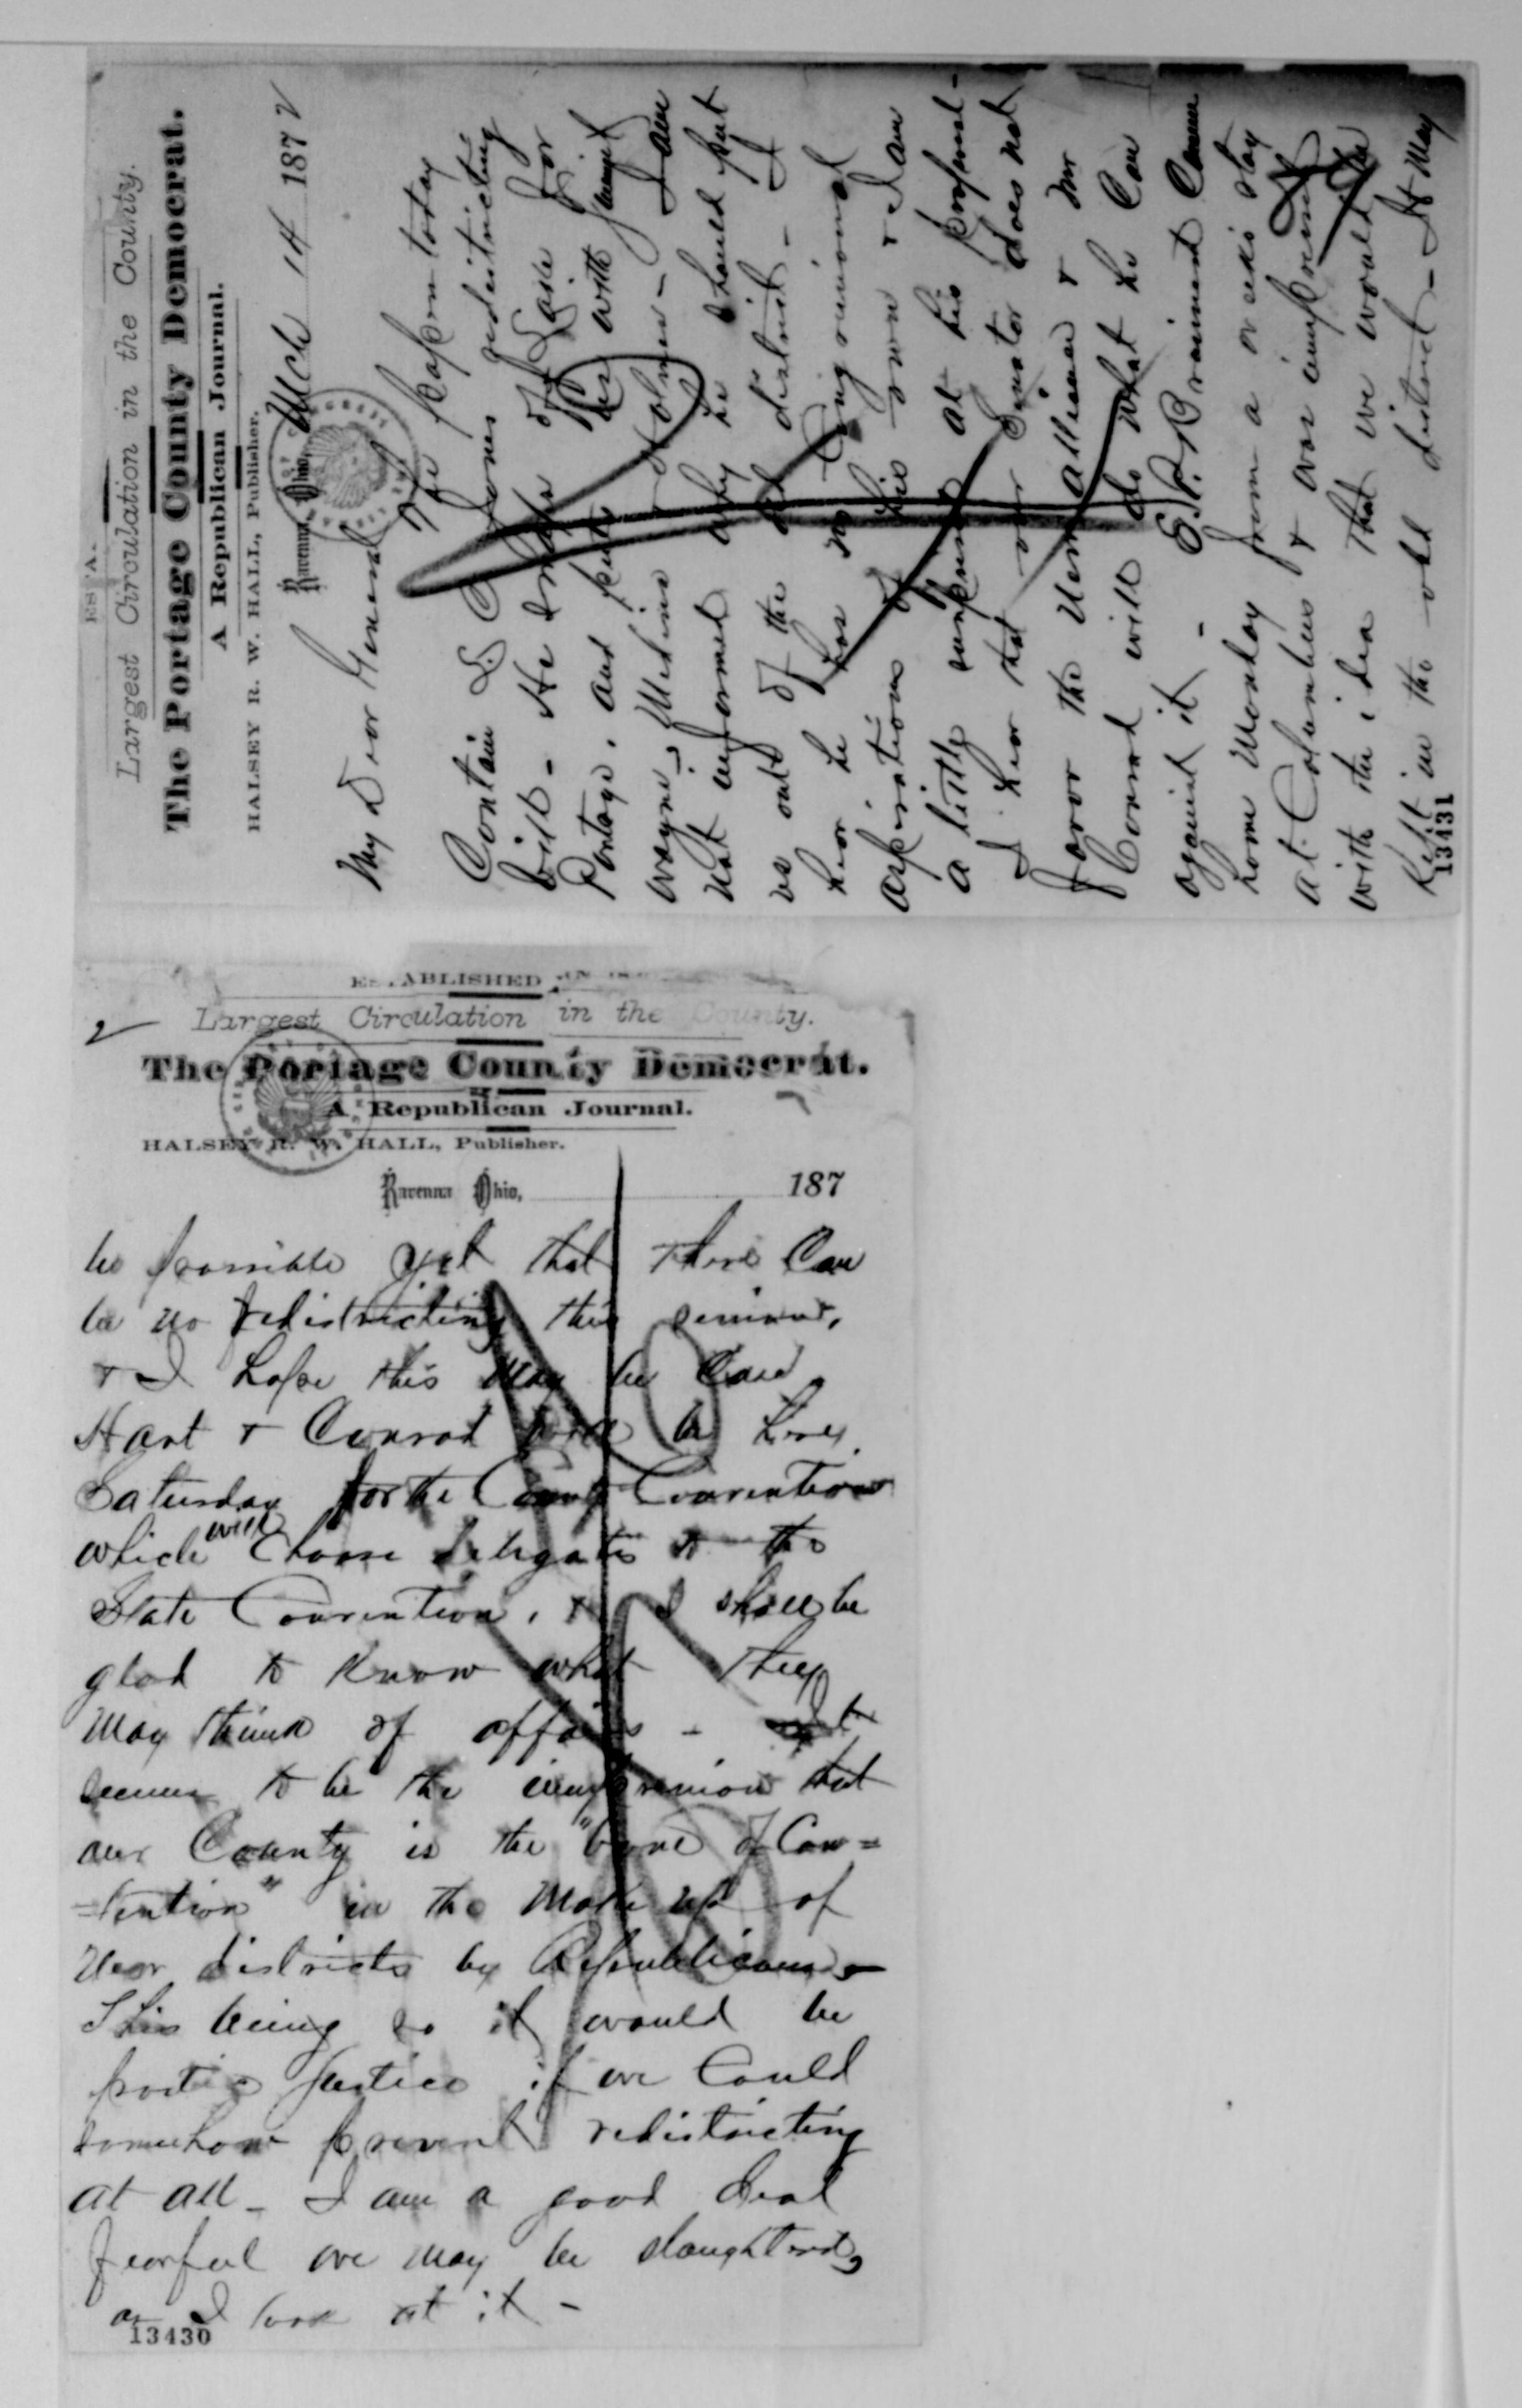 ESTA.
Largest Circulation in the County.
The Portage County Democrat.
A Republican Journal.
HALSEY R. W. HALL, Publisher.
Ravenna, Ohio, Mch 14 1872
My Dear General
The papers today
Contain S. C. Jones redistricting
bill - He Snaps off Lake for
Portage, and puts us with Summit
Wayne, Medina I am
not informed why he should put
us out of the old district - I
hear he has no Congressional
aspirations of his own & I am
a little surprised at his proposal -
I hear that our Senator does not
favor the Jones alliance & Mr
Conrad will do what he Can
against it - E. P. Brainerd Came
home Monday from a weeks stay
at Columbus & was impressed
with the idea that we would be
left in the old district - It May
13431
ESTABLISHED IN
2
Largest Circulation in the County.
The Portage County Democrat.
A Republican Journal.
HALSEY R. W. HALL, Publisher.
Ravenna Ohio, 187
be possible yet that there Can
be no redistricting this session,
& I hope this May be Case.
Hart & Conrad will be here
Saturday for the County Convention
which will Choose delegates to the
State Convention, & I shall be
glad to know what they
May think of affairs - It
seems to be the impression that
our County is the "bone of Con=
=tention" in the Make up of
new districts by Republicans -
This being so it would be
poetic justice if we Could
somehow prevent redistricting
at all - I am a good deal
fearful we may be slaughtered,
as I look at it -
13430